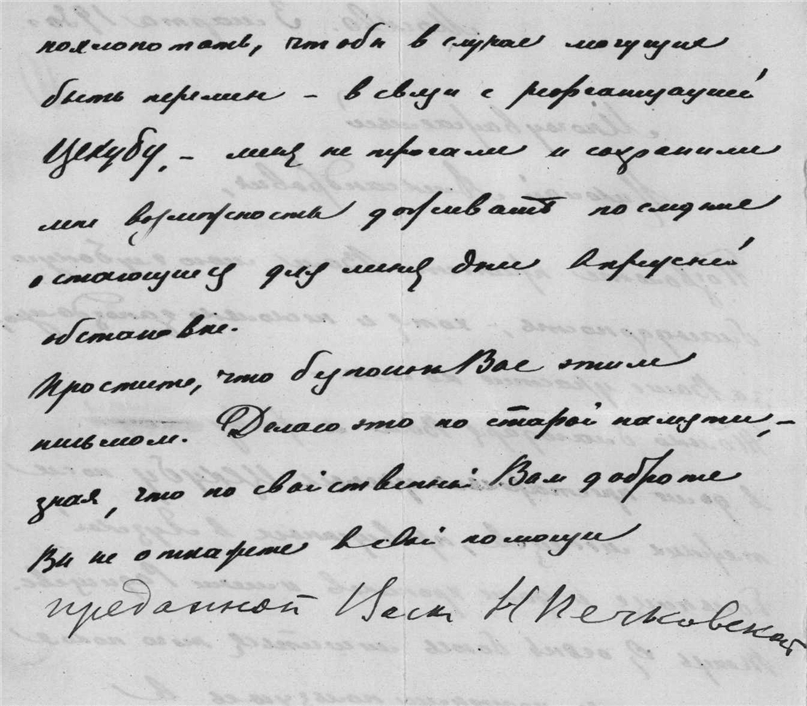 похлопотать, чтобы в случае могущих
быть перемен – в связи с реорганизацией
ЦЕКУБУ, – меня не трогали и сохранили
мне возможность доживать последние
остающиеся для меня дни в
обстановке.
Простите, что беспокою Вас этим
письмом. Делаю это по старой памяти, –
зная, что по свойственной Вам доброте
Вы не откажете в помощи
преданной Вам Н Печковской